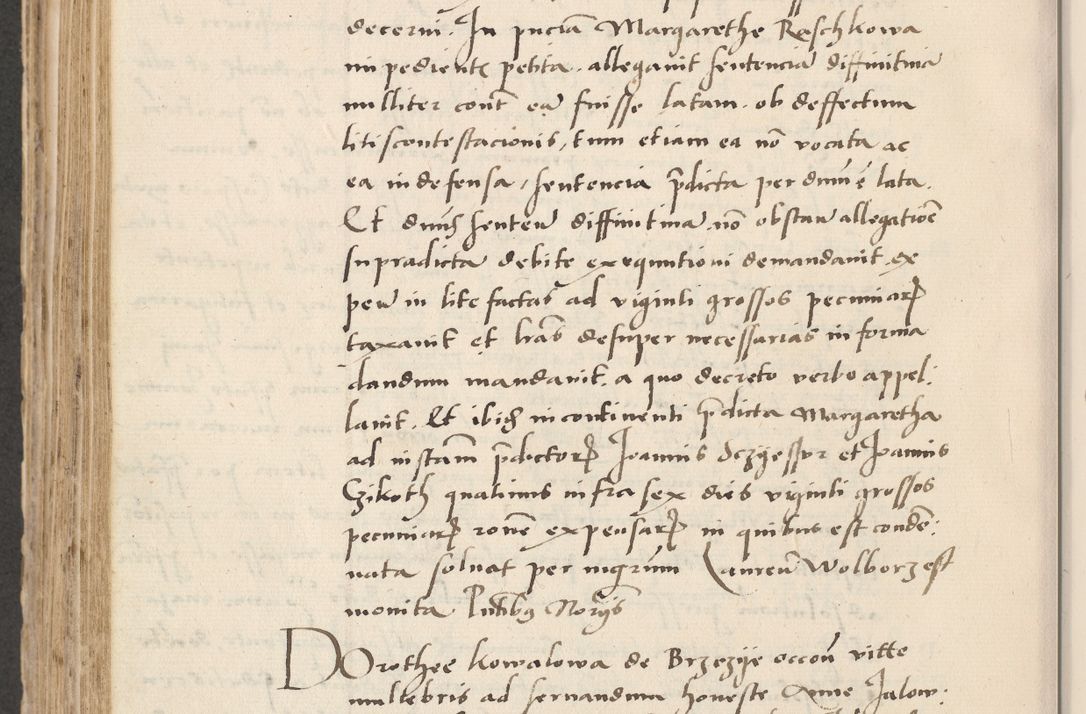 decerni. In pnciã Margarethe Raschkowa
impedientẽ petita. allegavit sentenciã diffinitivã
nulliter cont eã fuisse latam. ob deffectum
litiscontestacionis, tum etiam ea nõ vocata ac
ea indefensa, sentencia p̃dicta per dnum ẽ lata.
Et dnus senten diffinitiva, nõ obstañ allegatiõe
supradicta debite exequutioni demandavit, ex
peñ in lite factas ad viginti grossos pecuniarꝝ
taxavit et lr̃as desuper necessarias in forma
dandum mandavit. a quo decreto verbo appel:
lavit. Et ibid incontinenti p̃dicta Margaretha
ad instam p̃dictorꝝ Joannis Sczyessyr et Joannis
Czikoth quatinus infra sex dies viginti grossos
pecuniarꝝ rõne expensarꝝ in quibus est condẽ:
nata solvat per mgrum Laureñ Wolborz est
monita Pntibus Norijs
Dorothee kowalowa de Brzezije occoñ vitte
mullebris ad servandum honeste Anne Jalow: